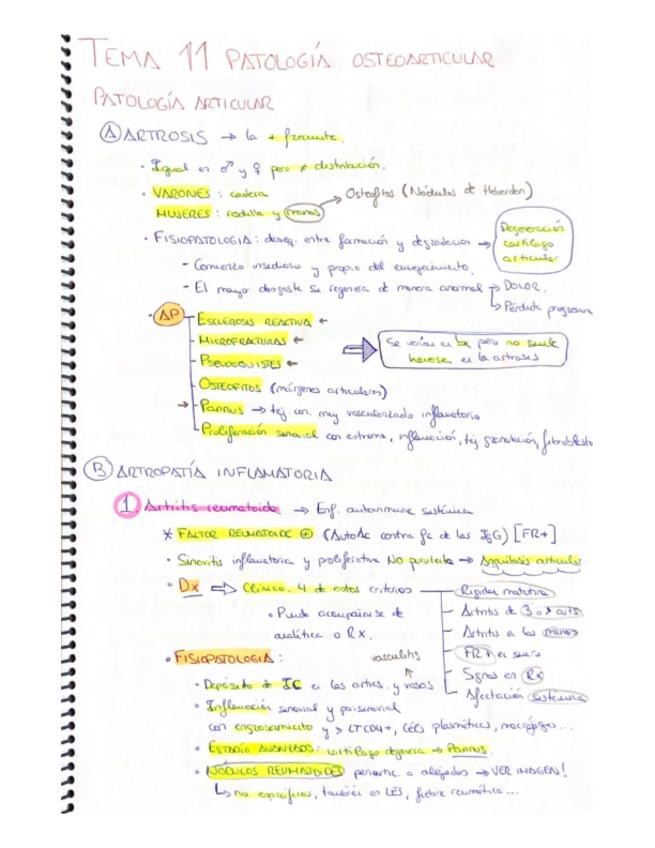 TEMA 11 PATOLOGÍA OSTEOARTICULAR
PATOLOGÍA ARTICULAR
A ARTROSIS → la + frecuente.
· Igual en ♂ y ♀ pero ≠ distribución.
· VARONES: cadera
MUJERES: rodilla y manos → Osteofitos (Nódulos de Heberden)
· FISIOPATOLOGIA: deseq. entre formación y degradación → Degeneración cartílago articular
- Comienzo insidioso y propio del envejecimiento.
- El mayor desgaste se regenera de manera anormal → DOLOR.
↳ Pérdida progresiva
· AP
- ESCLEROSIS REACTIVA ←
- MICROFRACTURAS ←
- PSEUDOQUISTES ←
⇒ Se verían en bx pero no suele hacerse en la artrosis
- OSTEOFITOS (márgenes articulares)
→ - PANNUS → tej. con. muy vascularizado inflamatorio
- Proliferación sinovial con estroma, inflamación, tej granulación, fibroblastos
B ARTROPATÍA INFLAMATORIA
1. Artritis reumatoide → Enf. autoinmune sistémica
* FACTOR REUMATOIDE ⊕ (AutoAc contra fc de las IgG) [FR+]
· Sinovitis inflamatoria y proliferativa No purulenta → Anquilosis articular
· Dx ⇒ Clínico. 4 de estos criterios
- Rigidez matutina
- Artritis de 3 o + arts.
- Artritis a las manos
- FR+ en suero
- Signos en Rx
- Afectación sistémica
· Puede acompañarse de
analítica o Rx.
· FISIOPATOLOGIA:
vasculitis
↑
· Depósito de IC en las artics. y vasos
· Inflamación sinovial y perisinovial
con engrosamiento y > LTCD4+, céls plasmáticas, macrófagos...
· ESTADÍO AVANZADO: cartílago degenera → Pannus.
· NÓDULOS REUMATOIDES periartic o alejados → VER IMAGEN!
↳ no específicos, también en LES, fiebre reumática...